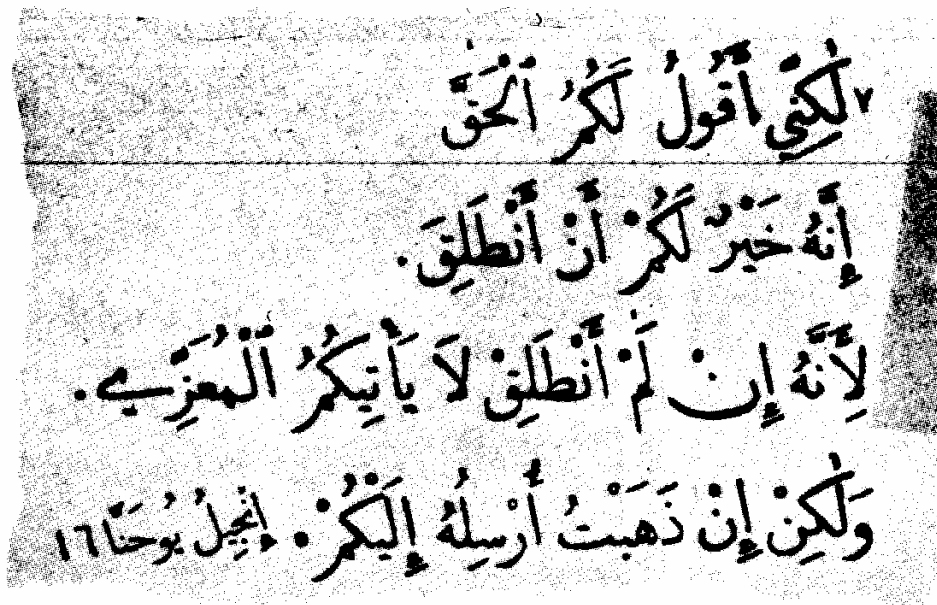 ٧ لٰكِنِّي أَقُولُ لَكُمُ ٱلْحَقَّ
إِنَّهُ خَيْرٌ لَكُمْ أَنْ أَنْطَلِقَ.
لِأَنَّهُ إِنْ لَمْ أَنْطَلِقْ لَا يَأْتِيكُمُ ٱلْمُعَزِّي.
وَلٰكِنْ إِنْ ذَهَبْتُ أُرْسِلُهُ إِلَيْكُمْ. إِنْجِيلُ يُوحَنَّا ١٦